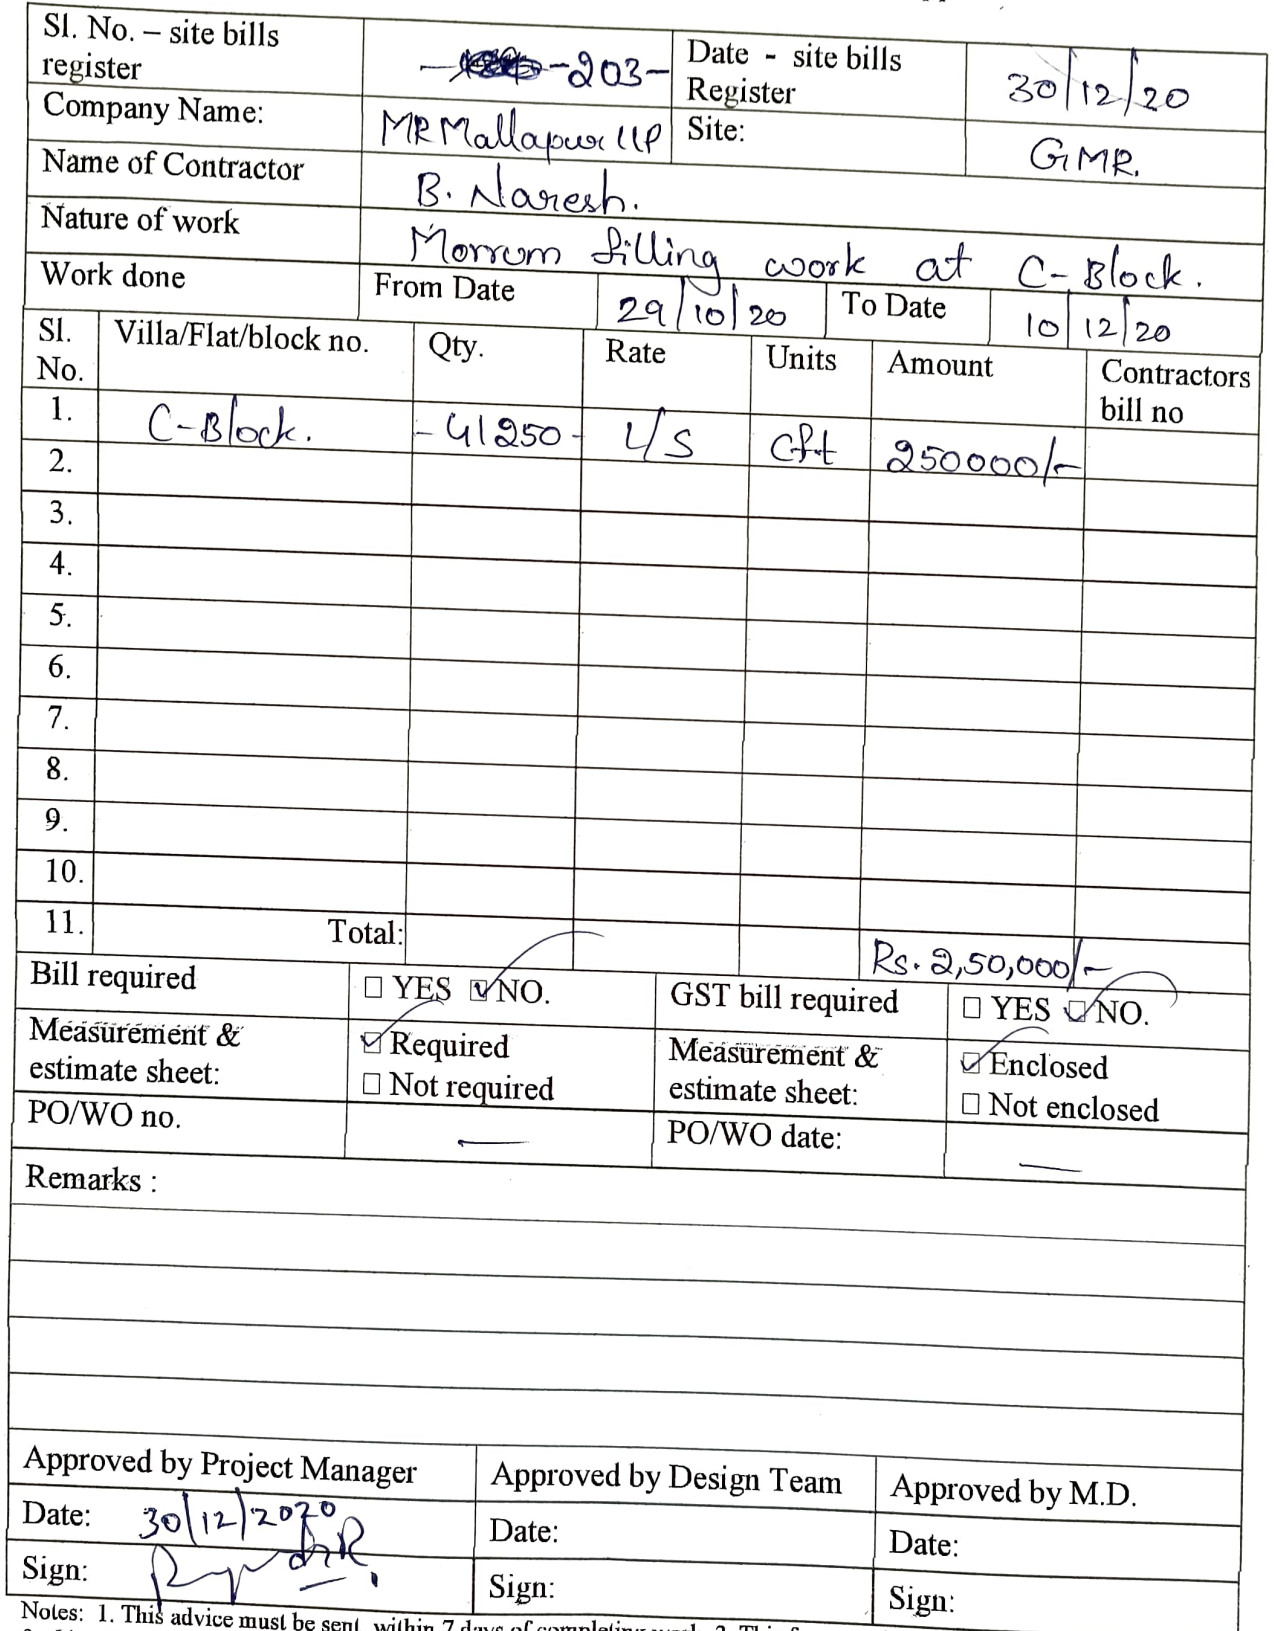 Sl. No. – site bills register -203- Date - site bills Register 30/12/20
Company Name: MR Mallapur LLP Site: GMR.
Name of Contractor B. Naresh.
Nature of work Morrum filling work at C-Block.
Work done From Date 29/10/20 To Date 10/12/20
Sl. No. Villa/Flat/block no. Qty. Rate Units Amount Contractors bill no
1. C-Block. -41250- L/S Cft 250000/-
2.
3.
4.
5.
6.
7.
8.
9.
10.
11. Total: Rs. 2,50,000/-
Bill required ☐ YES ☑ NO. GST bill required ☐ YES ☑ NO.
Measurement & estimate sheet: ☑ Required ☐ Not required Measurement & estimate sheet: ☑ Enclosed ☐ Not enclosed
PO/WO no. — PO/WO date: —
Remarks :
Approved by Project Manager Approved by Design Team Approved by M.D.
Date: 30/12/2020 Date: Date:
Sign: Sign: Sign:
Notes: 1. This advice must be sent within 7 days of completing work. 2. This